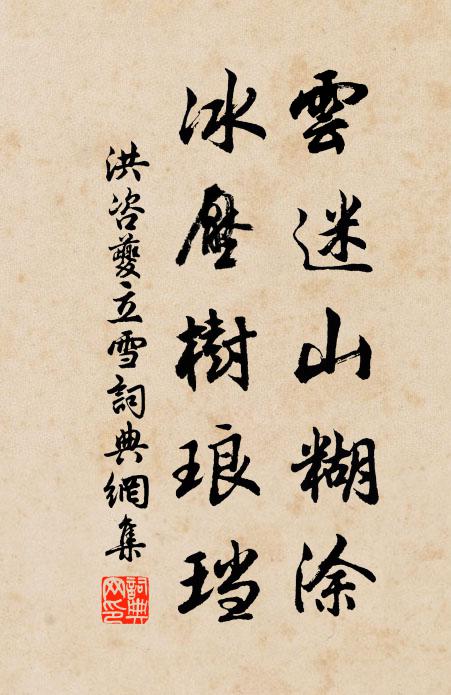 雲迷山糊涂
冰壓樹琅珰
洪咨夔立雪詞典網集
詞典
网印